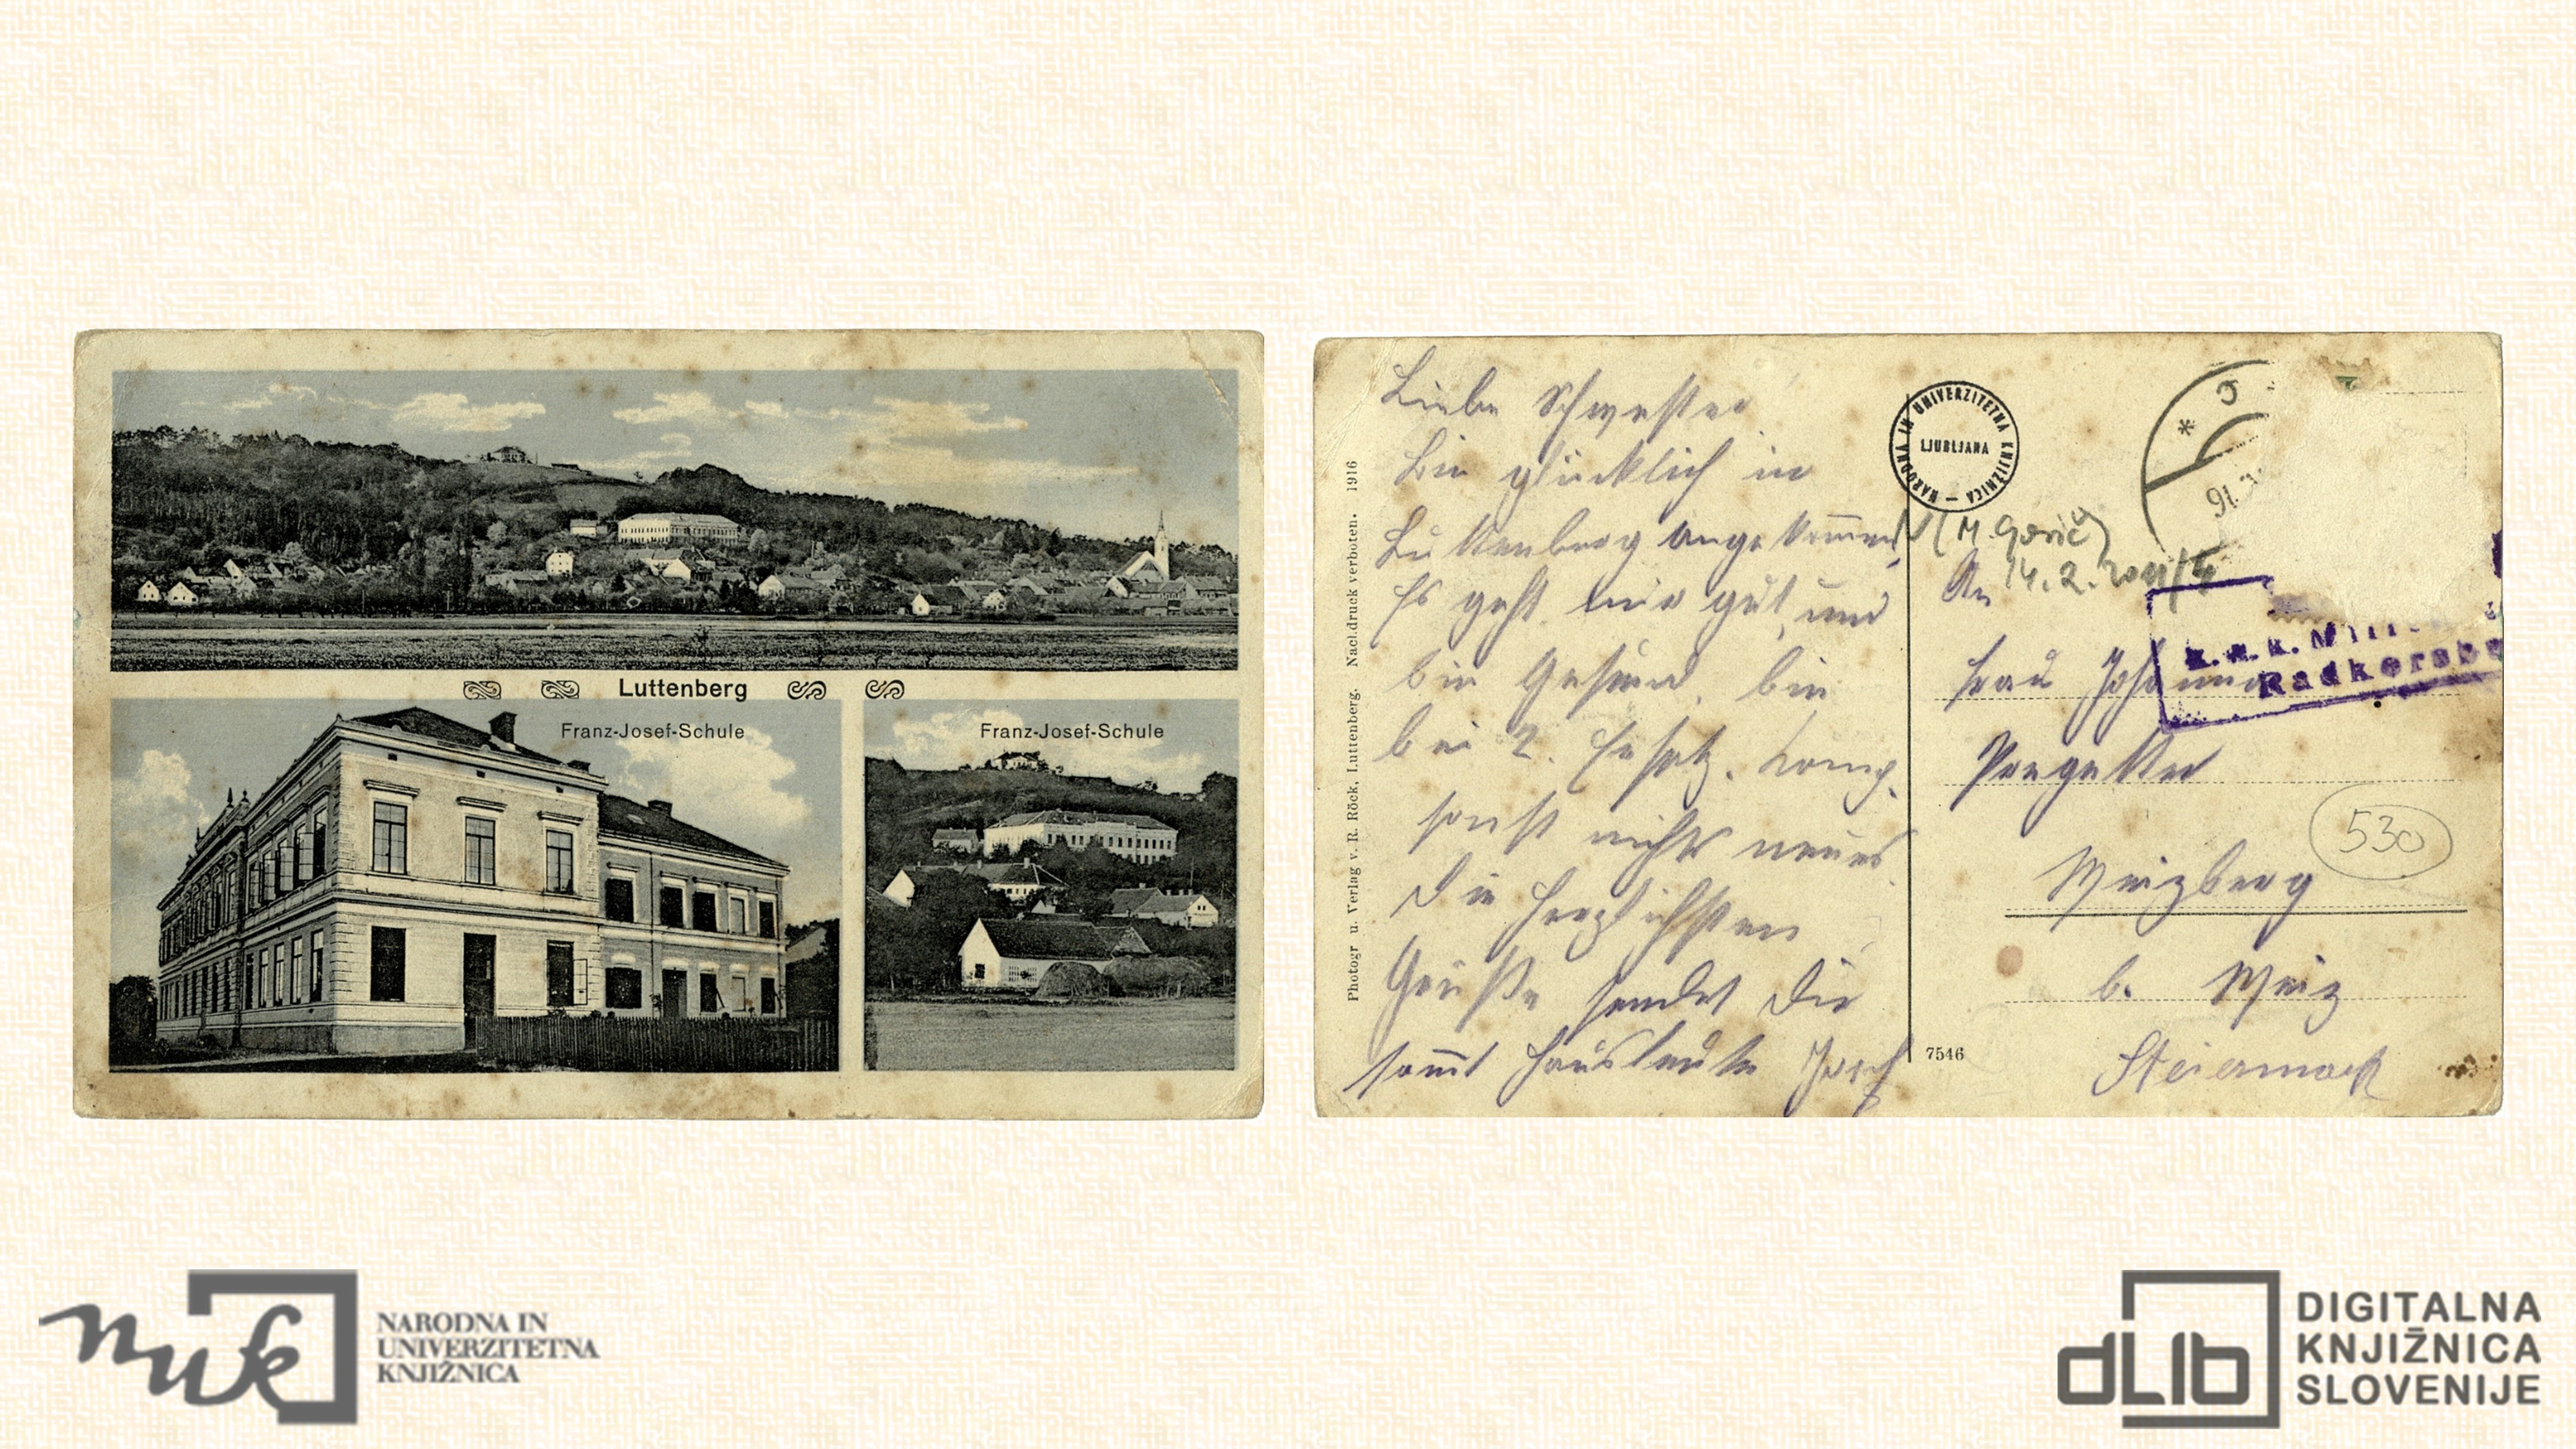 Luttenberg
Franz-Josef-Schule
Franz-Josef-Schule
Photogr u. Verlag v. R. Röck, Luttenberg. Nachdruck verboten. 1916
Liebe Schwester
Bin glücklich in
Luttenberg angekommen
Es geht mir gut, und
bin Gesund, bin
bei 2. Ersatz. Komp.
sonst nichts neues
Die Herzlichsten
Grüße sendet Dir
samt Hausleute Josef
NARODNA IN UNIVERZITETNA KNJIŽNICA
LJUBLJANA
(M. Gorič)
14. 2. 2011/4
An
Frau Johanna
k. u. k. Mili
Radkersb
Pregetter
530
Weizberg
b. Weiz
Steiermark
7546
nuk
NARODNA IN
UNIVERZITETNA
KNJIŽNICA
dLib
DIGITALNA
KNJIŽNICA
SLOVENIJE